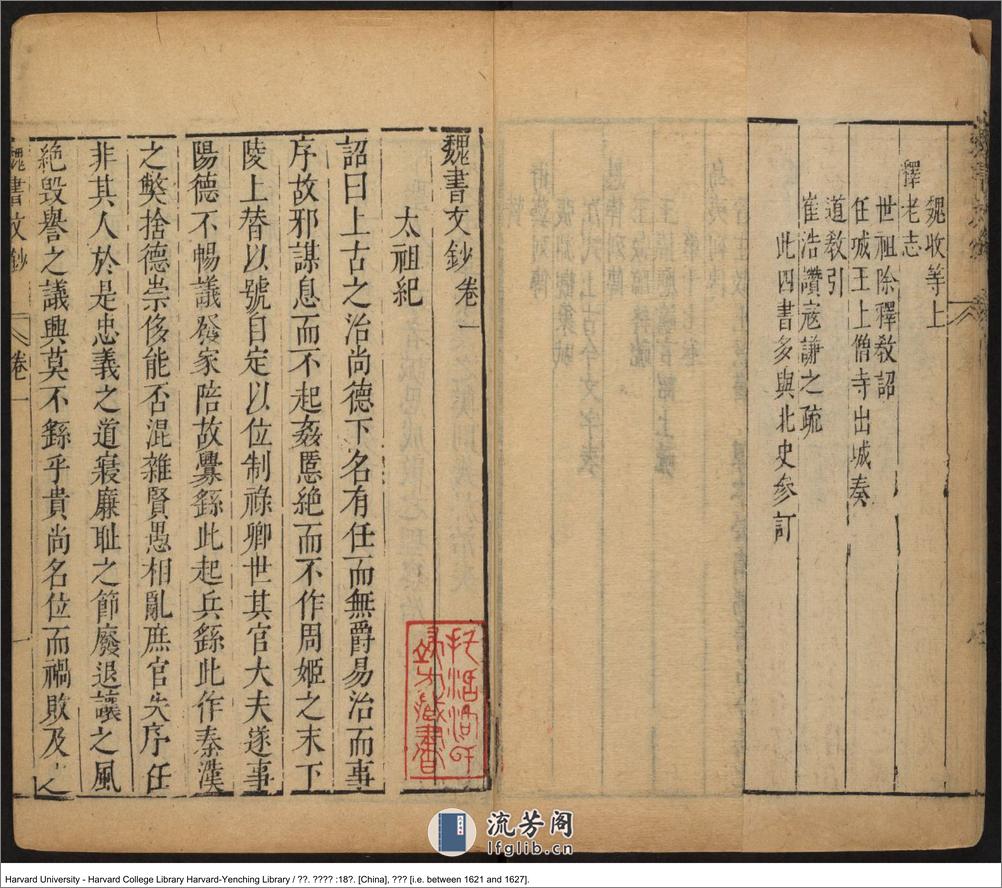 魏收等上
釋老志
世祖除釋教詔
任城王上僧寺出城奏
道教引
崔浩讚寇謙之疏
此四書多與北史參訂
魏書文鈔卷一
太祖紀
詔曰上古之治尚德下名有任而無爵易治而事
序故邪謀息而不起姦慝絶而不作周姬之末下
陵上替以號自定以位制祿卿世其官大夫遂事
陽德不暢議發家陪故釁繇此起兵繇此作秦漢
之獘捨德崇侈能否混雜賢愚相亂庶官失序任
非其人於是忠義之道寢廉耻之節廢退讓之風
絶毁譽之議興莫不繇乎貴尚名位而禍敗及之
魏書文鈔
卷一
一
藏書
流芳阁
lfglib.cn
Harvard University - Harvard College Library Harvard-Yenching Library / ??. ???? :18?. [China], ??? [i.e. between 1621 and 1627].